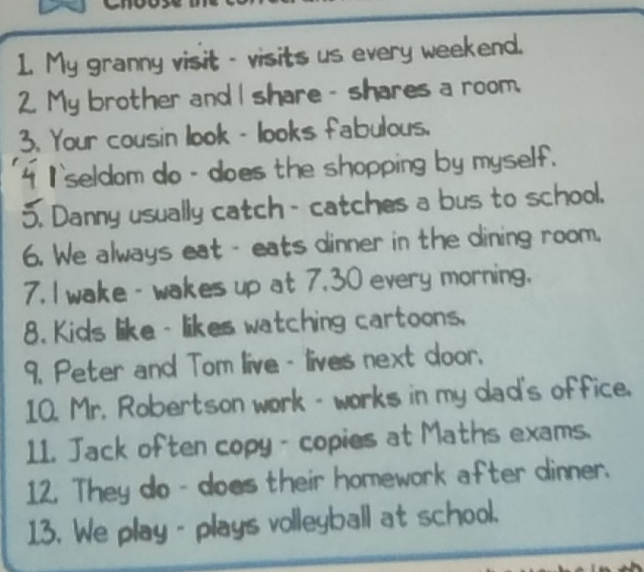 1. My granny visit - visits us every weekend.
2. My brother and I share - shares a room.
3. Your cousin look - looks fabulous.
4. I seldom do - does the shopping by myself.
5. Danny usually catch - catches a bus to school.
6. We always eat - eats dinner in the dining room.
7. I wake - wakes up at 7.30 every morning.
8. Kids like - likes watching cartoons.
9. Peter and Tom live - lives next door.
10. Mr. Robertson work - works in my dad's office.
11. Jack often copy - copies at Maths exams.
12. They do - does their homework after dinner.
13. We play - plays volleyball at school.